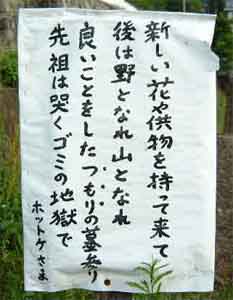 新しい花や供物を持って来て
後は野となれ山となれ
良いことをしたつもりの墓参り
先祖は哭くゴミの地獄で
ホットケさま